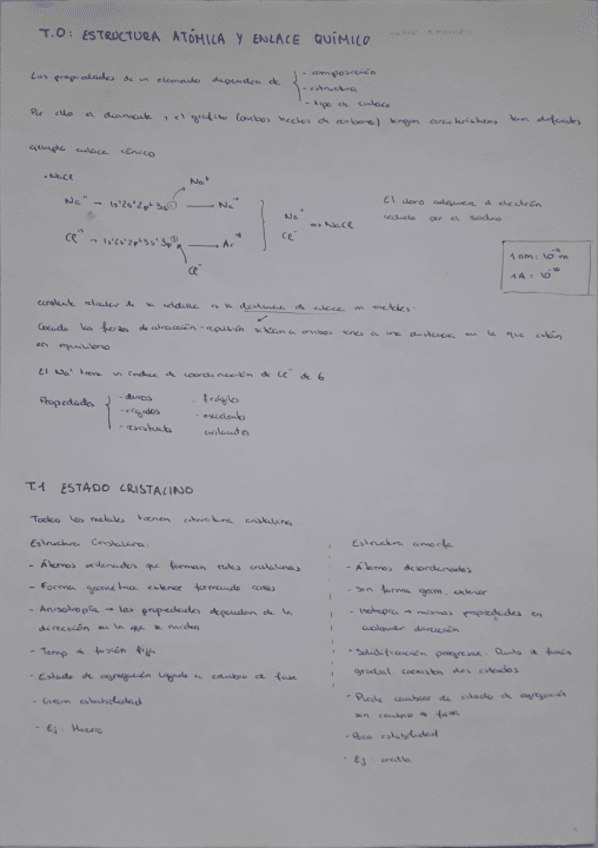 T.0: ESTRUCTURA ATÓMICA Y ENLACE QUÍMICO
Las propiedades de un elemento dependen de
- composición
- estructura
- tipo de enlace
Por ello el diamante y el grafito (ambos hechos de carbono) tengan características tan diferentes
ejemplo enlace iónico
• NaCl
Na⁺
Na¹¹ → 1s²2s²2p⁶3s① → Ne¹⁰
Cl¹⁷ → 1s²2s²2p⁶3s²3p⑤ → Ar¹⁸
Cl⁻
Na⁺
Cl⁻
⇒ NaCl
El cloro adquiere el electrón
cedido por el sodio
1 nm = 10⁻⁹ m
1 Å = 10⁻¹⁰
constante es la distancia de enlace en metales.
Cuando las fuerzas de atracción-repulsión sitúan a ambos iones a una distancia en la que están
en equilibrio
El Na⁺ tiene un índice de coordinación de Cl⁻ de 6
Propiedades
- duros
- rígidos
- resistentes
- frágiles
- excelentes
aislantes
T.1 ESTADO CRISTALINO
Todos los metales tienen estructura cristalina.
Estructura Cristalina:
- Átomos ordenados que forman redes cristalinas
- Forma geométrica exterior formando caras
- Anisotropía → las propiedades dependen de la
dirección en la que se miden
- Temp de fusión fija
- Estado de agregación ligado a cambio de fase
- Gran estabilidad
- Ej: Hierro
Estructura amorfa
- Átomos desordenados
- Sin forma geom. exterior
- Isotropía → mismas propiedades en
cualquier dirección
- Solidificación progresiva. Punto de fusión
gradual. coexisten dos estados
- Puede cambiar de estado de agregación
sin cambio de fase
- Poca estabilidad
- Ej: